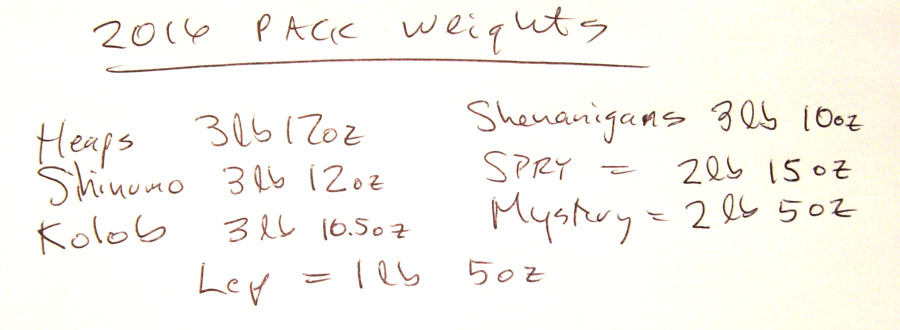 2016 PACK Weights
Heaps 3lb 12oz
Shinumo 3lb 12oz
Kolob 3lb 10.5oz
Shenanigans 3lb 10oz
SPRY = 2lb 15oz
Mystery = 2lb 5oz
= 1lb 5oz